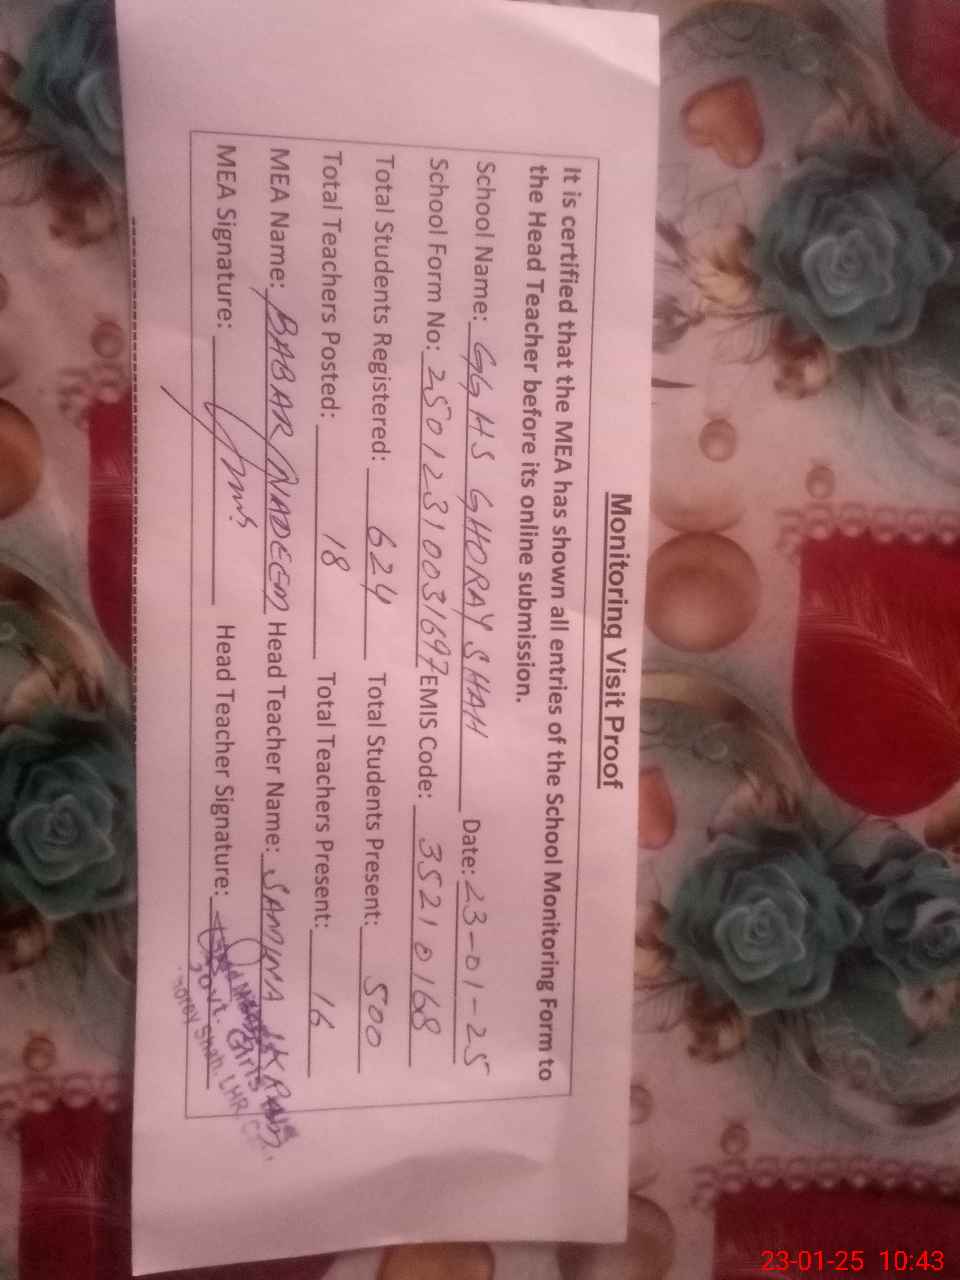 Monitoring Visit Proof
It is certified that the MEA has shown all entries of the School Monitoring Form to
the Head Teacher before its online submission.
School Name: GGHS GHORAY SHAH Date: 23-01-25
School Form No: 25012310031697 EMIS Code: 35210168
Total Students Registered: 624 Total Students Present: 500
Total Teachers Posted: 18 Total Teachers Present: 16
MEA Name: BABAR NADEEM Head Teacher Name: SAMINA
MEA Signature: Head Teacher Signature:
Govt. Girls
Shah, LHR
23-01-25 10:43